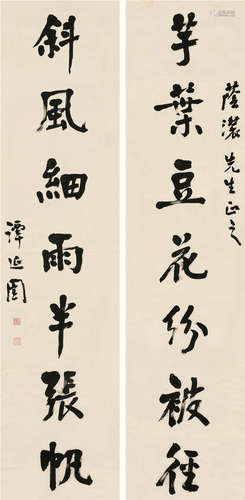 芋葉豆花紛被徑
蔭濃先生正之
斜風細雨半張帆
譚延闓